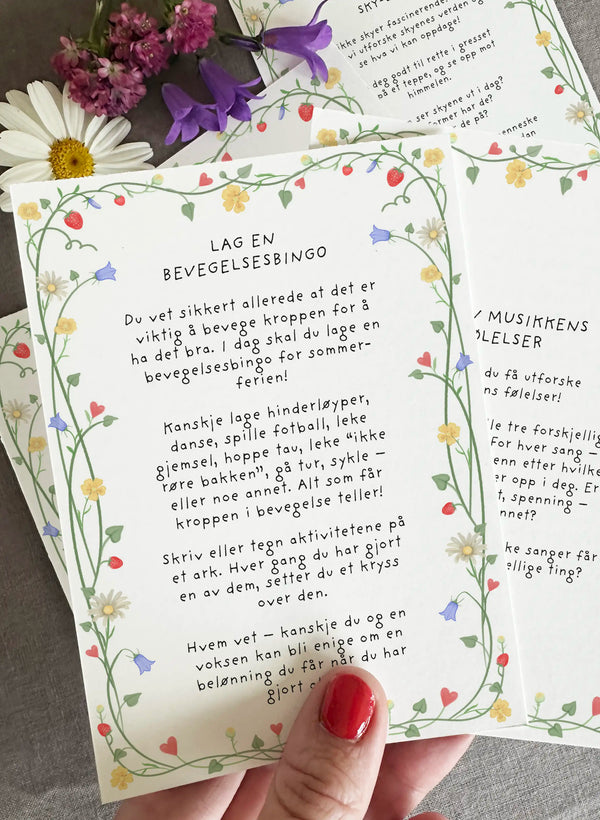 SKY
ikke skyer fascinerende
vi utforske skyenes verden og
se hva vi kan oppdage!
deg godt til rette i gresset
på et teppe, og se opp mot
himmelen.
ser skyene ut i dag?
former har de?
de på?
LAG EN
BEVEGELSESBINGO
Du vet sikkert allerede at det er
viktig å bevege kroppen for å
ha det bra. I dag skal du lage en
bevegelsesbingo for sommer-
ferien!
Kanskje lage hinderløyper,
danse, spille fotball, leke
gjemsel, hoppe tau, leke "ikke
røre bakken", gå tur, sykle –
eller noe annet. Alt som får
kroppen i bevegelse teller!
Skriv eller tegn aktivitetene på
et ark. Hver gang du har gjort
en av dem, setter du et kryss
over den.
Hvem vet – kanskje du og en
voksen kan bli enige om en
belønning du får når du har
gjort
MUSIKKENS
ØLELSER
du få utforske
ns følelser!
le tre forskjellig
For hver sang –
enn etter hvilke
er opp i deg. Er
t, spenning –
nnet?
ke sanger får
ellige ting?